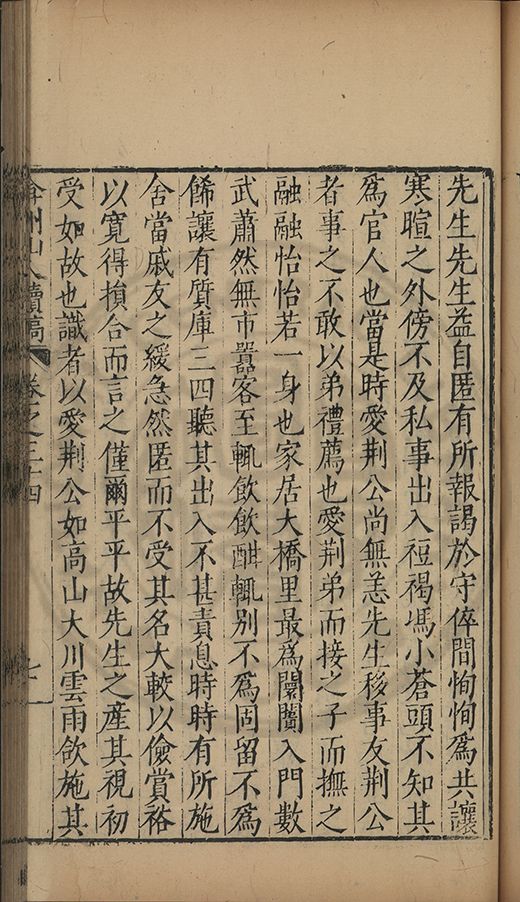 先生先生益自匿有所報謁於守倅間恂恂爲共讓
寒暄之外傍不及私事出入裋褐馮小蒼頭不知其
爲官人也當是時愛荆公尚無恙先生移事友荆公
者事之不敢以弟禮薦也愛荆弟而接之子而撫之
融融怡怡若一身也家居大橋里最爲闤闠入門數
武蕭然無市囂客至輒飲飲酣輒別不爲固留不爲
餙讓有質庫三四聽其出入不甚責息時時有所施
舍當戚友之緩急然匿而不受其名大較以儉嗇裕
以寛得損合而言之僅爾平平故先生之產其視初
受如故也識者以愛荆公如高山大川雲雨欲施其
弇州山人續稿 卷之三十四 七